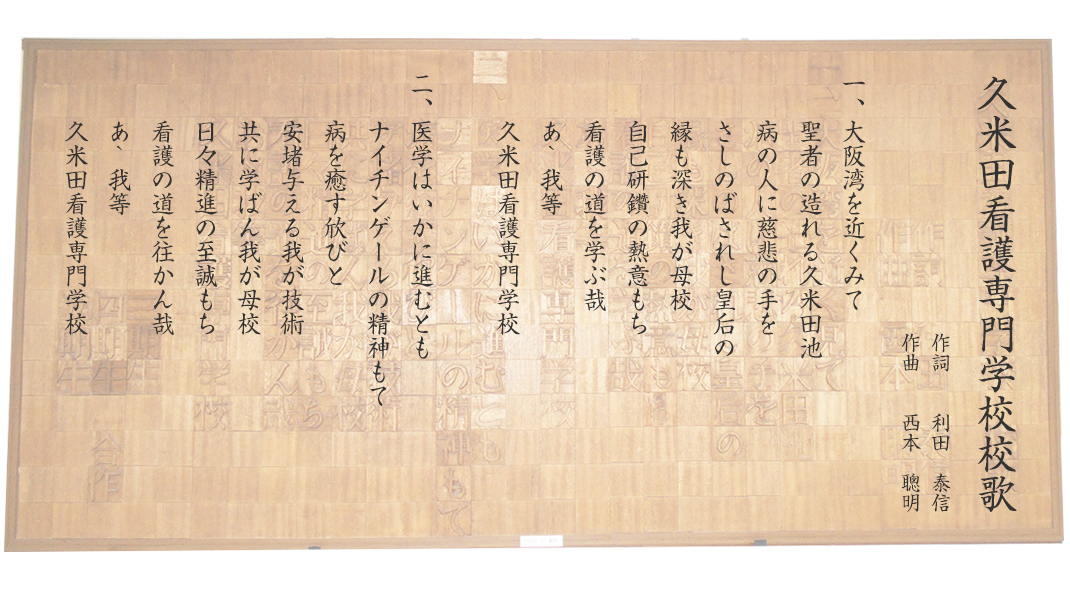 久米田看護専門学校校歌
作詞 利田 泰信
作曲 西本 聰明
一、
大阪湾を近くみて
聖者の造れる久米田池
病の人に慈悲の手を
さしのばされし皇后の
縁も深き我が母校
自己研鑽の熱意もち
看護の道を学ぶ哉
あゝ我等
久米田看護専門学校
二、
医学はいかに進むとも
ナイチンゲールの精神もて
病を癒す欣びと
安堵与える我が技術
共に学ばん我が母校
日々精進の至誠もち
看護の道を往かん哉
あゝ我等
久米田看護専門学校